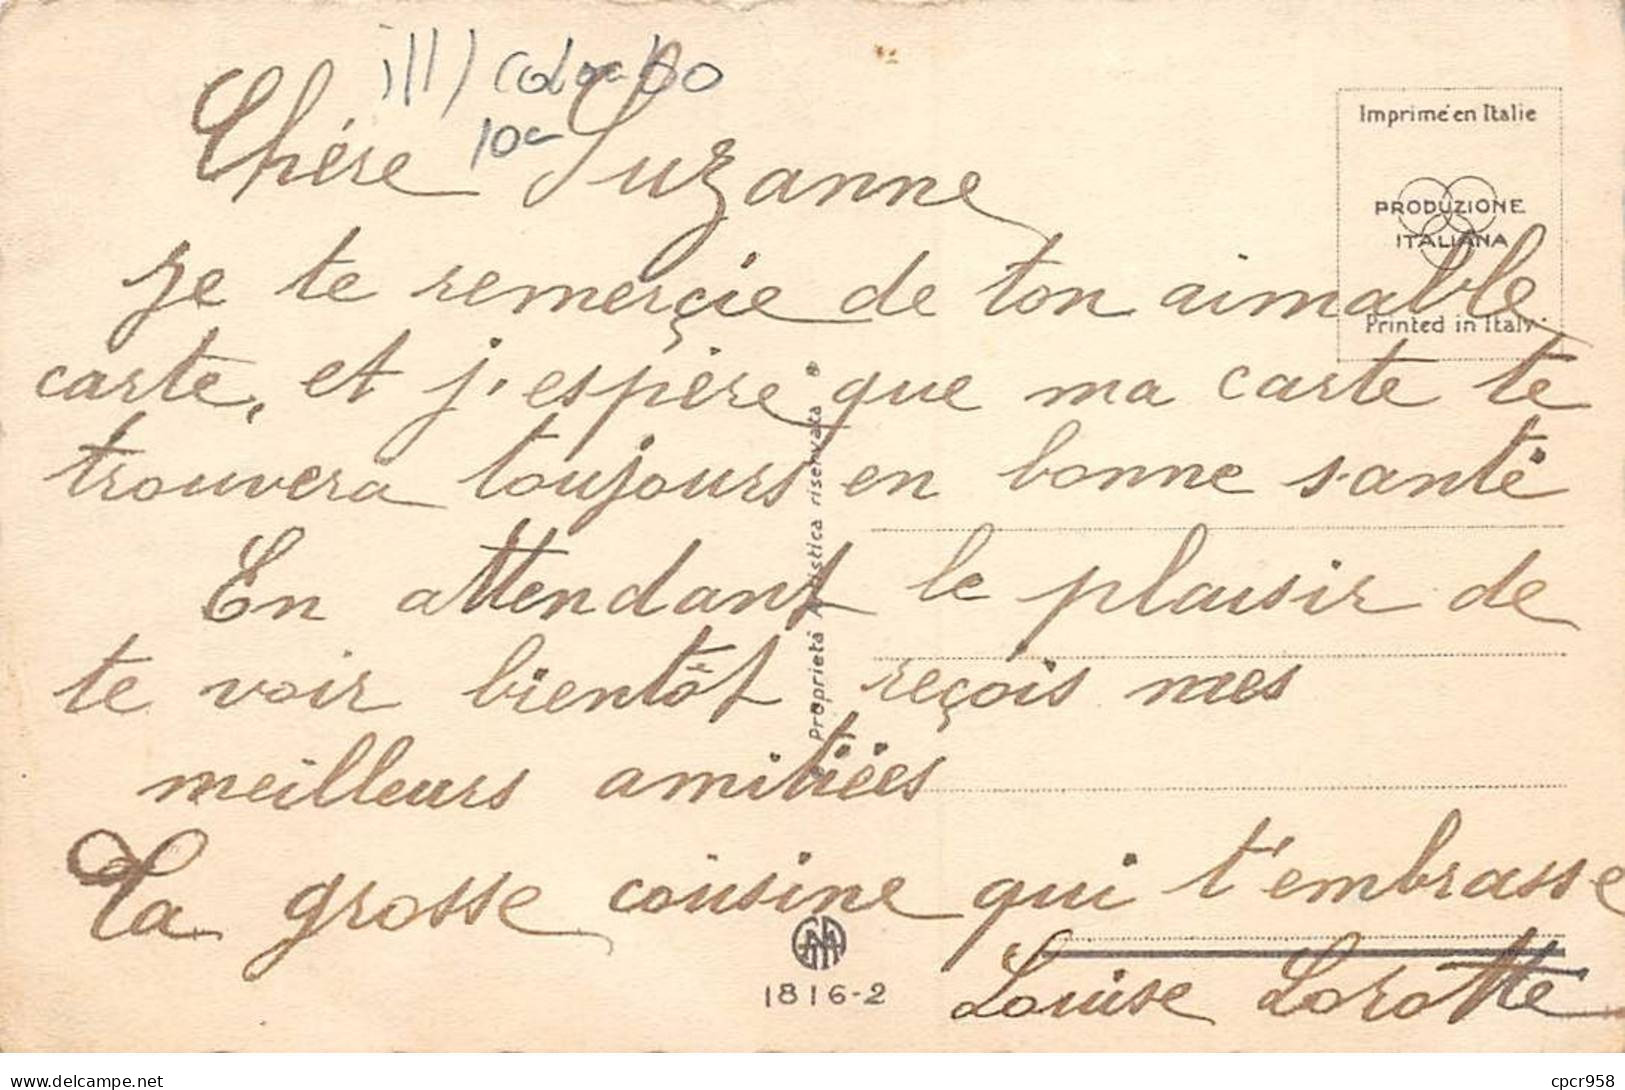 ill) Colombo
10e
Chére Suzanne
Je te remerçie de ton aimable
carte, et j'espère que ma carte te
trouvera toujours en bonne santé
En attendant le plaisir de
te voir bientôt reçois mes
meilleurs amitiées
Ta grosse cousine qui t'embrasse
Louise Lorotte
Imprimé en Italie
PRODUZIONE
ITALIANA
Printed in Italy
Proprietà Artistica riservata
1816-2
cpcr958